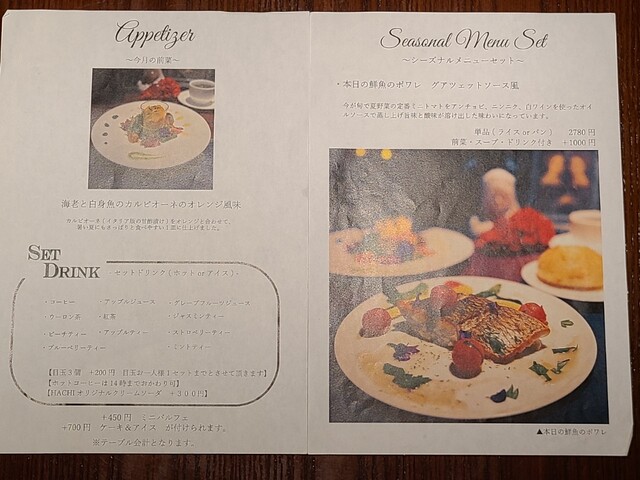 Appetizer
～今月の前菜～
海老と白身魚のカルピオーネのオレンジ風味
カルピオーネ(イタリア版の甘酢漬け)をオレンジと合わせて、
暑い夏にもさっぱりと食べやすい1皿に仕上げました。
SET
DRINK -セットドリンク(ホットorアイス)-
・コーヒー ・アップルジュース ・グレープフルーツジュース
・ウーロン茶 ・紅茶 ・ジャスミンティー
・ピーチティー ・アップルティー ・ストロベリーティー
・ブルーベリーティー ・ミントティー
【目玉3個 +200円 目玉お一人様1セットまでとさせて頂きます】
【ホットコーヒーは14時までおかわり可】
【HACHIオリジナルクリームソーダ +300円】
+450円 ミニパルフェ
+700円 ケーキ&アイス が付けられます。
※テーブル会計となります。
Seasonal Menu Set
～シーズナルメニューセット～
・本日の鮮魚のポワレ グアツェットソース風
今が旬で夏野菜の定番ミニトマトをアンチョビ、ニンニク、白ワインを使ったオイ
ルソースで蒸し上げ旨味と酸味が溶け出した味わいになっています。
単品(ライスorパン) 2780円
前菜・スープ・ドリンク付き +1000円
▲本日の鮮魚のポワレ